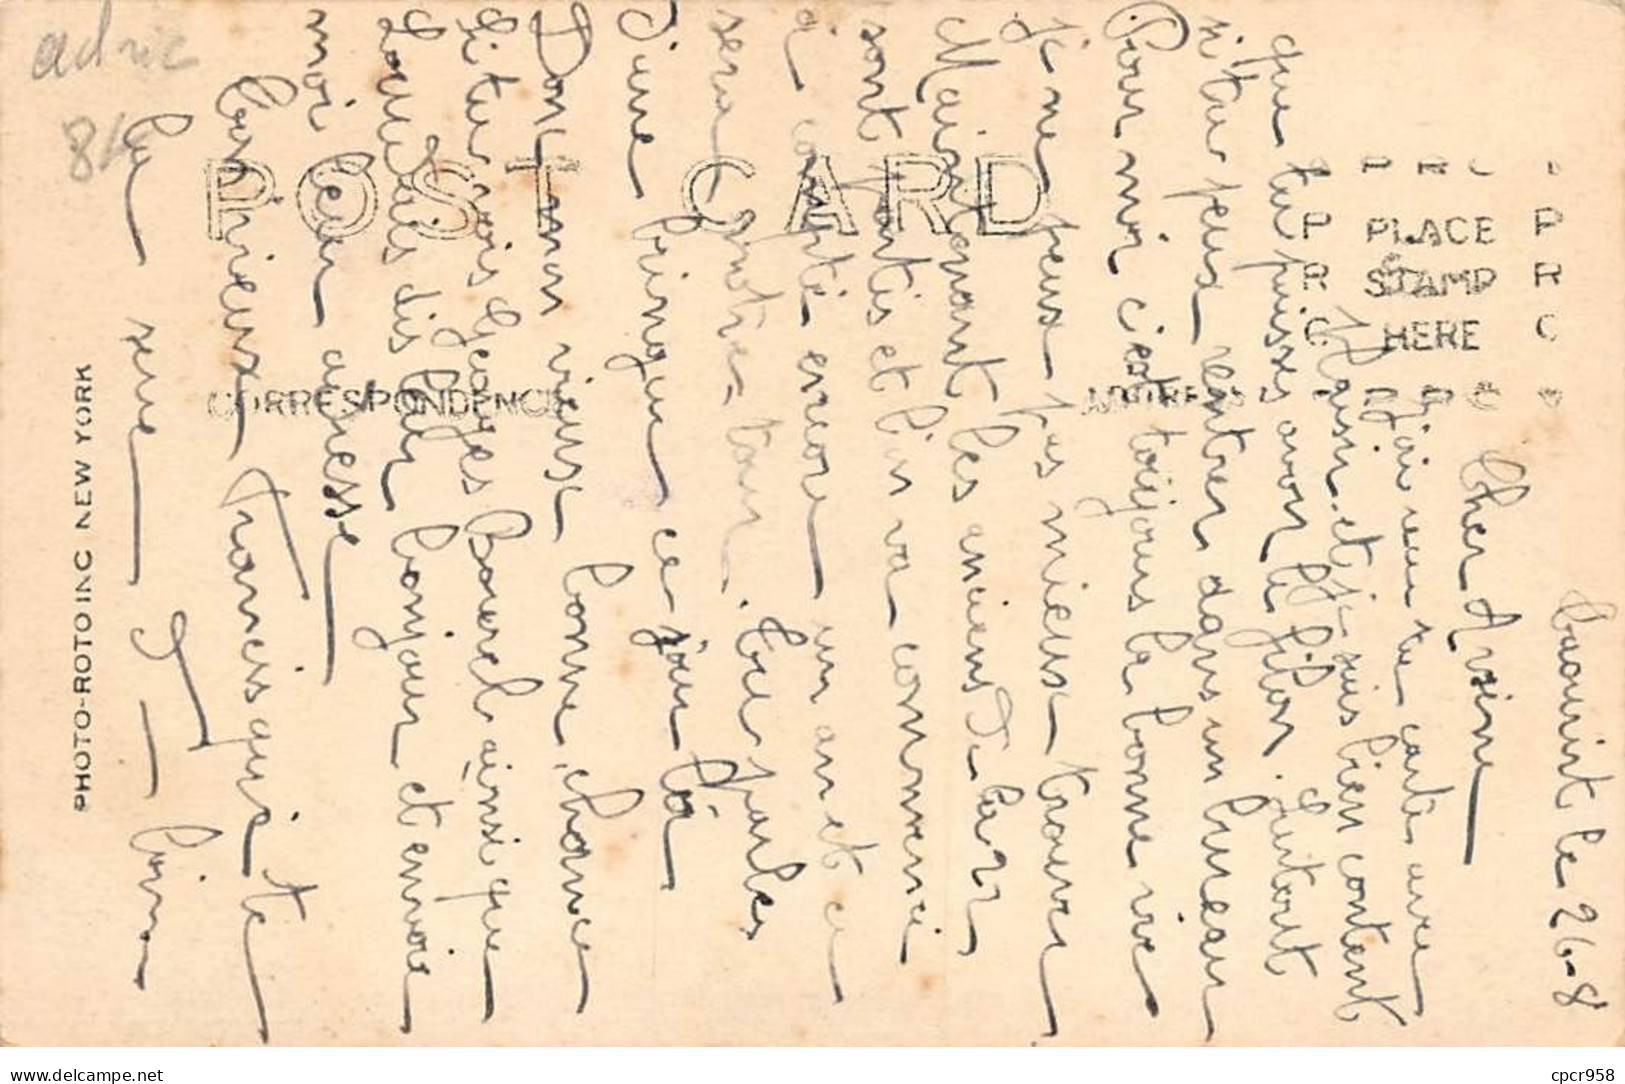 le 26-8
Cher
j'ai reçu ta carte avec
plaisir et je suis bien content
que tu puisses avoir le filon. Surtout
si tu peux rentrer dans un bureau
Pour moi c'est toujours la bonne vie
je ne peux pas mieux trouver
Maintenant les anciens
sont partis et l'on va commencer
à compter encore un an et ce
sera notre tour. Tu parles
d'une bringue ce jour là
Donc mon vieux bonne chance
Si tu vois Georges ainsi que
dis leur bonjour et envoie
moi leur adresse
Francis qui te
la serre
adric
84
POST CARD
CORRESPONDENCE
ADDRESS
PLACE
STAMP
HERE
PHOTO-ROTO INC NEW YORK
delcampe.net
cpcr958